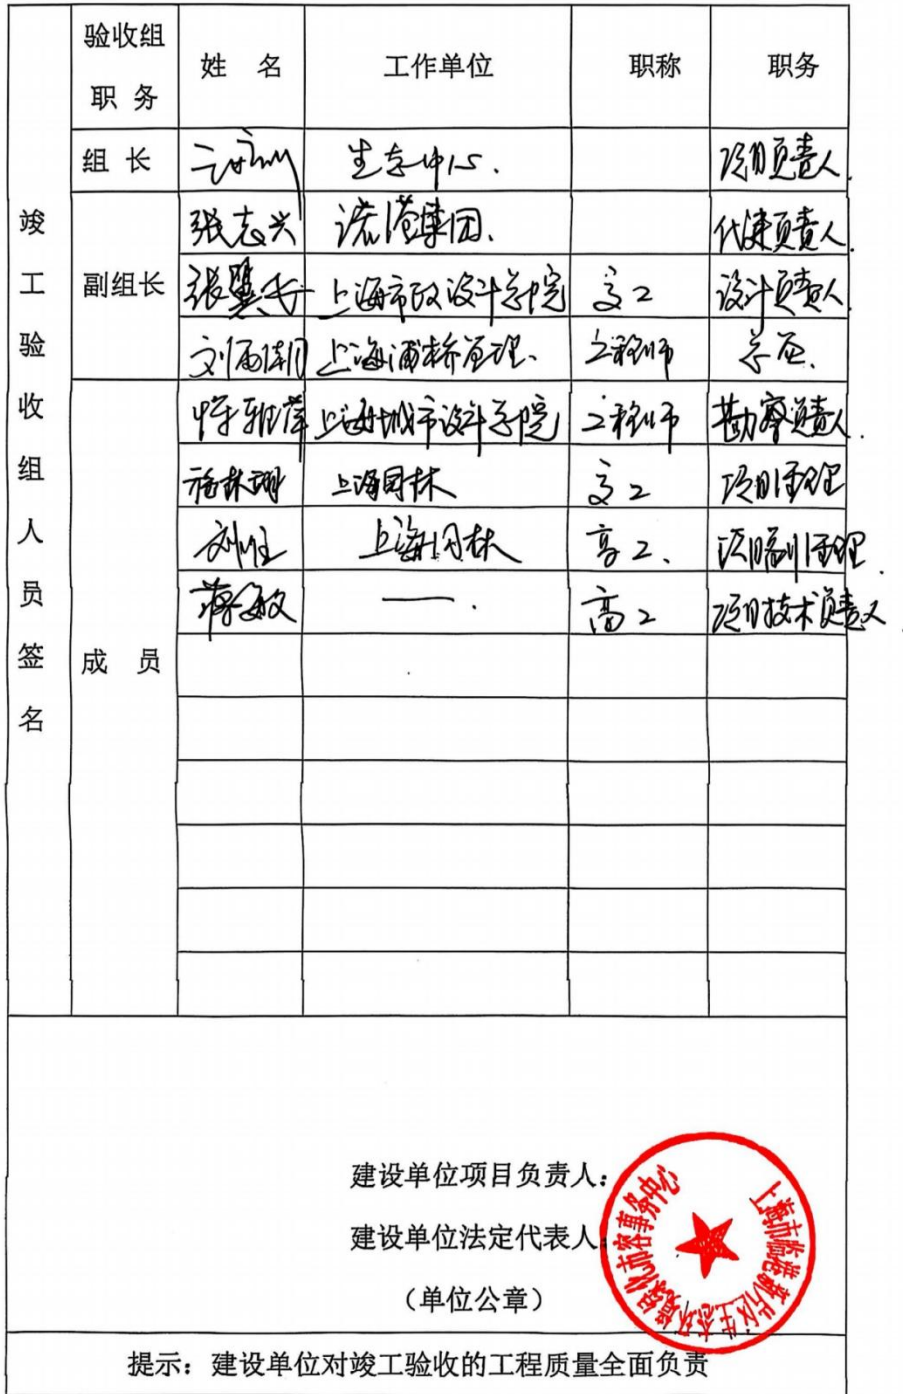 验收组
职 务
姓 名
工作单位
职称
职务
竣工验收组人员签名
组 长
生态中心.
项目负责人
副组长
张志兴
港集团.
代建负责人
张翼
上海市政设计总院
高工
设计负责人
刘
上海浦桥管理.
工程师
总监.
成 员
上海城市设计总院
工程师
勘察负责人.
上海园林
高工
项目经理
刘
上海园林
高工.
项目副经理.
蒋敏
——.
高工
项目技术负责人
建设单位项目负责人:
建设单位法定代表人:
(单位公章)
上海市临港新片区生态环境绿化市容事务中心
提示: 建设单位对竣工验收的工程质量全面负责